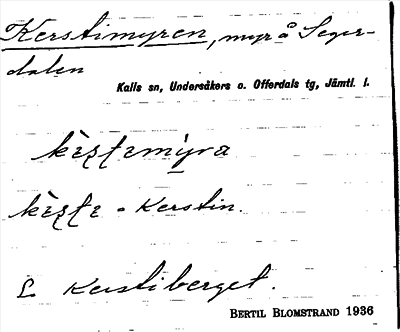 Kerstimyren, myr å Seger-
dalen
Kalls sn, Undersåkers o. Offerdals tg, Jämtl. l.
= Kerstin.
Kerstiberget.
BERTIL BLOMSTRAND 1936